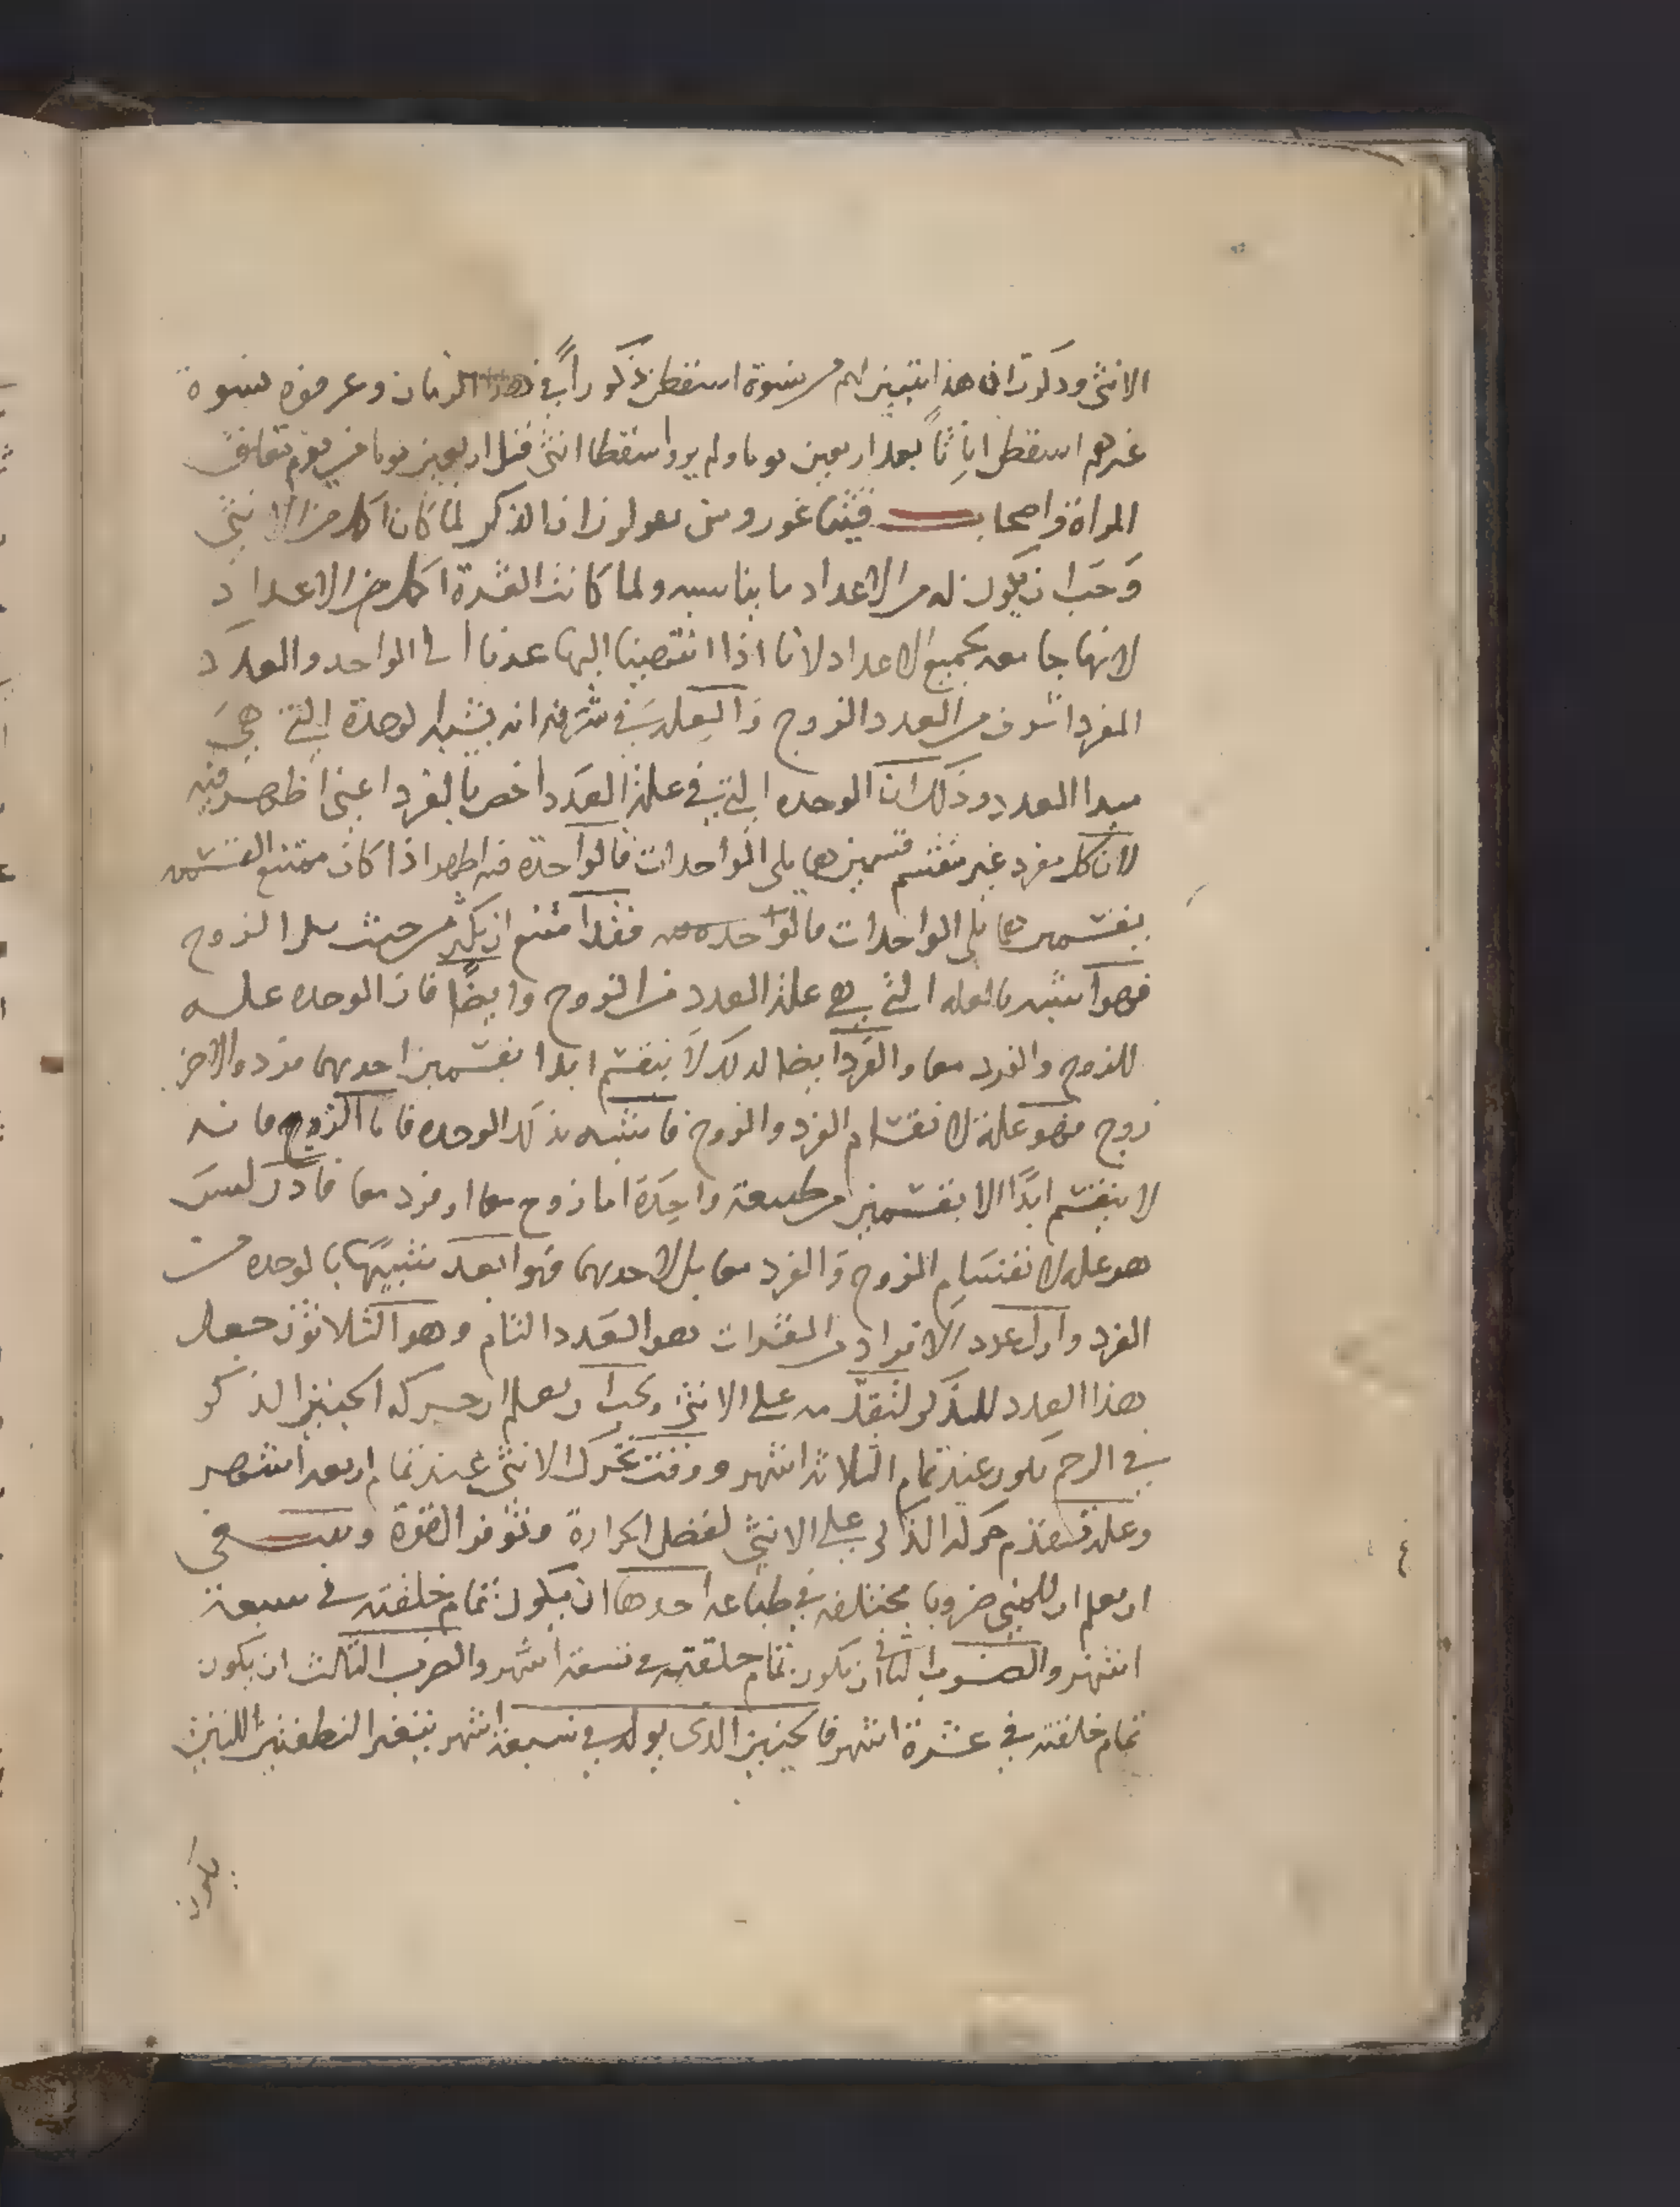 الانثى ودكروا ان هذا تبين لهم من نسوة اسقطن ذكوراً في هذا الزمان وعرفوه نسوة
غيرهم اسقطن اناثاً بعد اربعين يوما ولم يروا سقطا انثى قبل اربعين يوما فى يوم تعانق
المراة واصحاب فيثاغورروس يعولون ان الذكر لما كان اكمل من الانثى
وَجَب ان يكون له من الاعداد ما يناسبه ولما كانت العشرة اكمل من الاعداد
لانها جامعه لجميع الاعداد لانا اذا انتهينا اليها عدنا الى الواحد والعدد
المفرد اشرف من العدد الزوج والعله في شرفه انه يشبه الوحدة التي هي
مبدا العدد وذلك ان الوحده التي هي علة العدد اخص بالفرد اعني اظهر فيه
لان كل مفرد غير منقسم قسمين هما يلى الواحدات فالواحدة فيه اظهر اذا كان ممتنع القسمه
بقسمين هما يلى الواحدات فالواحده فقد امتنع ان يكثر من حيث يكثر الزوج
فهو اشبه بالعله التي هي علة العدد من الزوج وايضًا فان الوحده علـه
للزوج والفرد معا والفرد ايضا كذلك لا ينقسم ابدا بقسمين احديهما فرد والاخر
زوج فهو علة لانقسام الفرد والزوج فاشبه بذلك الوحده فاما الزوج فانه
لا ينقسم ابدًا الا بقسمين من طبيعة واحِدَة اما زوج معا او فرد معا فاذن ليسَ
هو علة لانقسَام الزوج وَالفرد معا بل لاحديهما فهو ابعد شبهًا بالوحده من
الفرد واول عدد الافراد من العشرات هو العدد التام وهو الثلاثون جعل
هذا العدد للذكر لتقدمه على الانثى ويجب ان يعلم ان حركة الجنين الذكر
في الرحم يكون عند تمام الثلاثة اشهر ووقت تحرك الانثى عند تمام اربعة اشهر
وعلة تقدم حركة الذكر على الانثى لفضل الحرارة وتوفر القوة وينبغي
ان يعلم ان للجنين ضروبا مختلفه في طباعه احدها ان يكون تمام خلقته في سبعة
اشهر والضرب الثاني ان يكون تمام خلقته في تسعة اشهر والضرب الثالث ان يكون
تمام خلقته في عشرة اشهر فالجنين الذى يولد في سبعة اشهر بتغير النطفتين اللتين
يكون